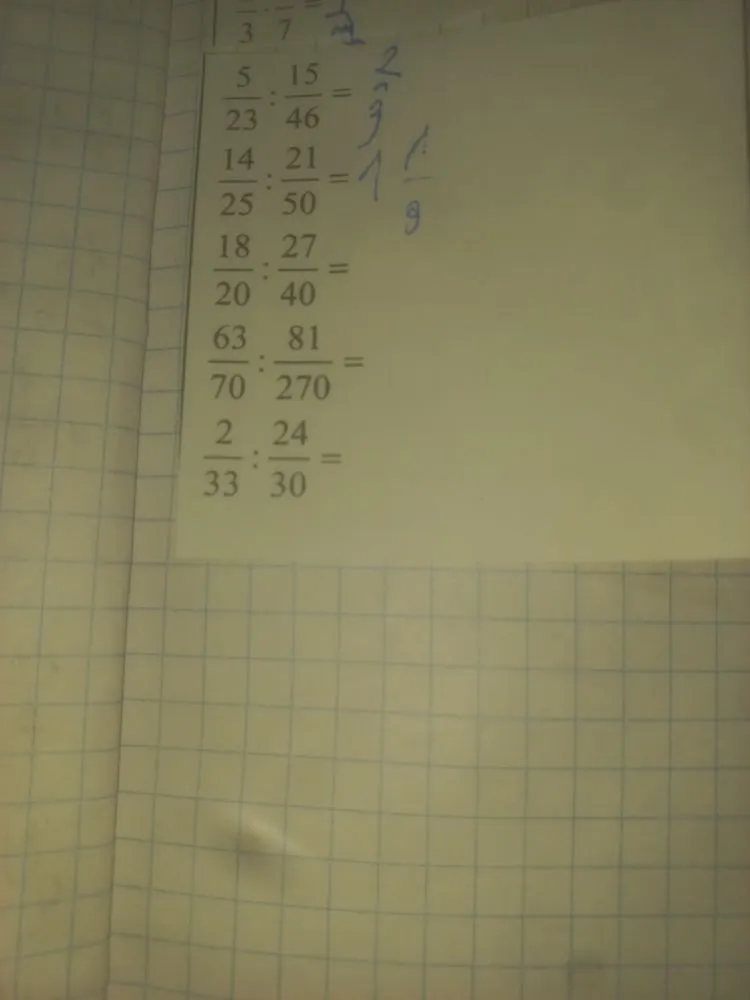 3 · 7 =
5/23 : 15/46 = 2/3
14/25 : 21/50 = 1 1/9
18/20 : 27/40 =
63/70 : 81/270 =
2/33 : 24/30 =